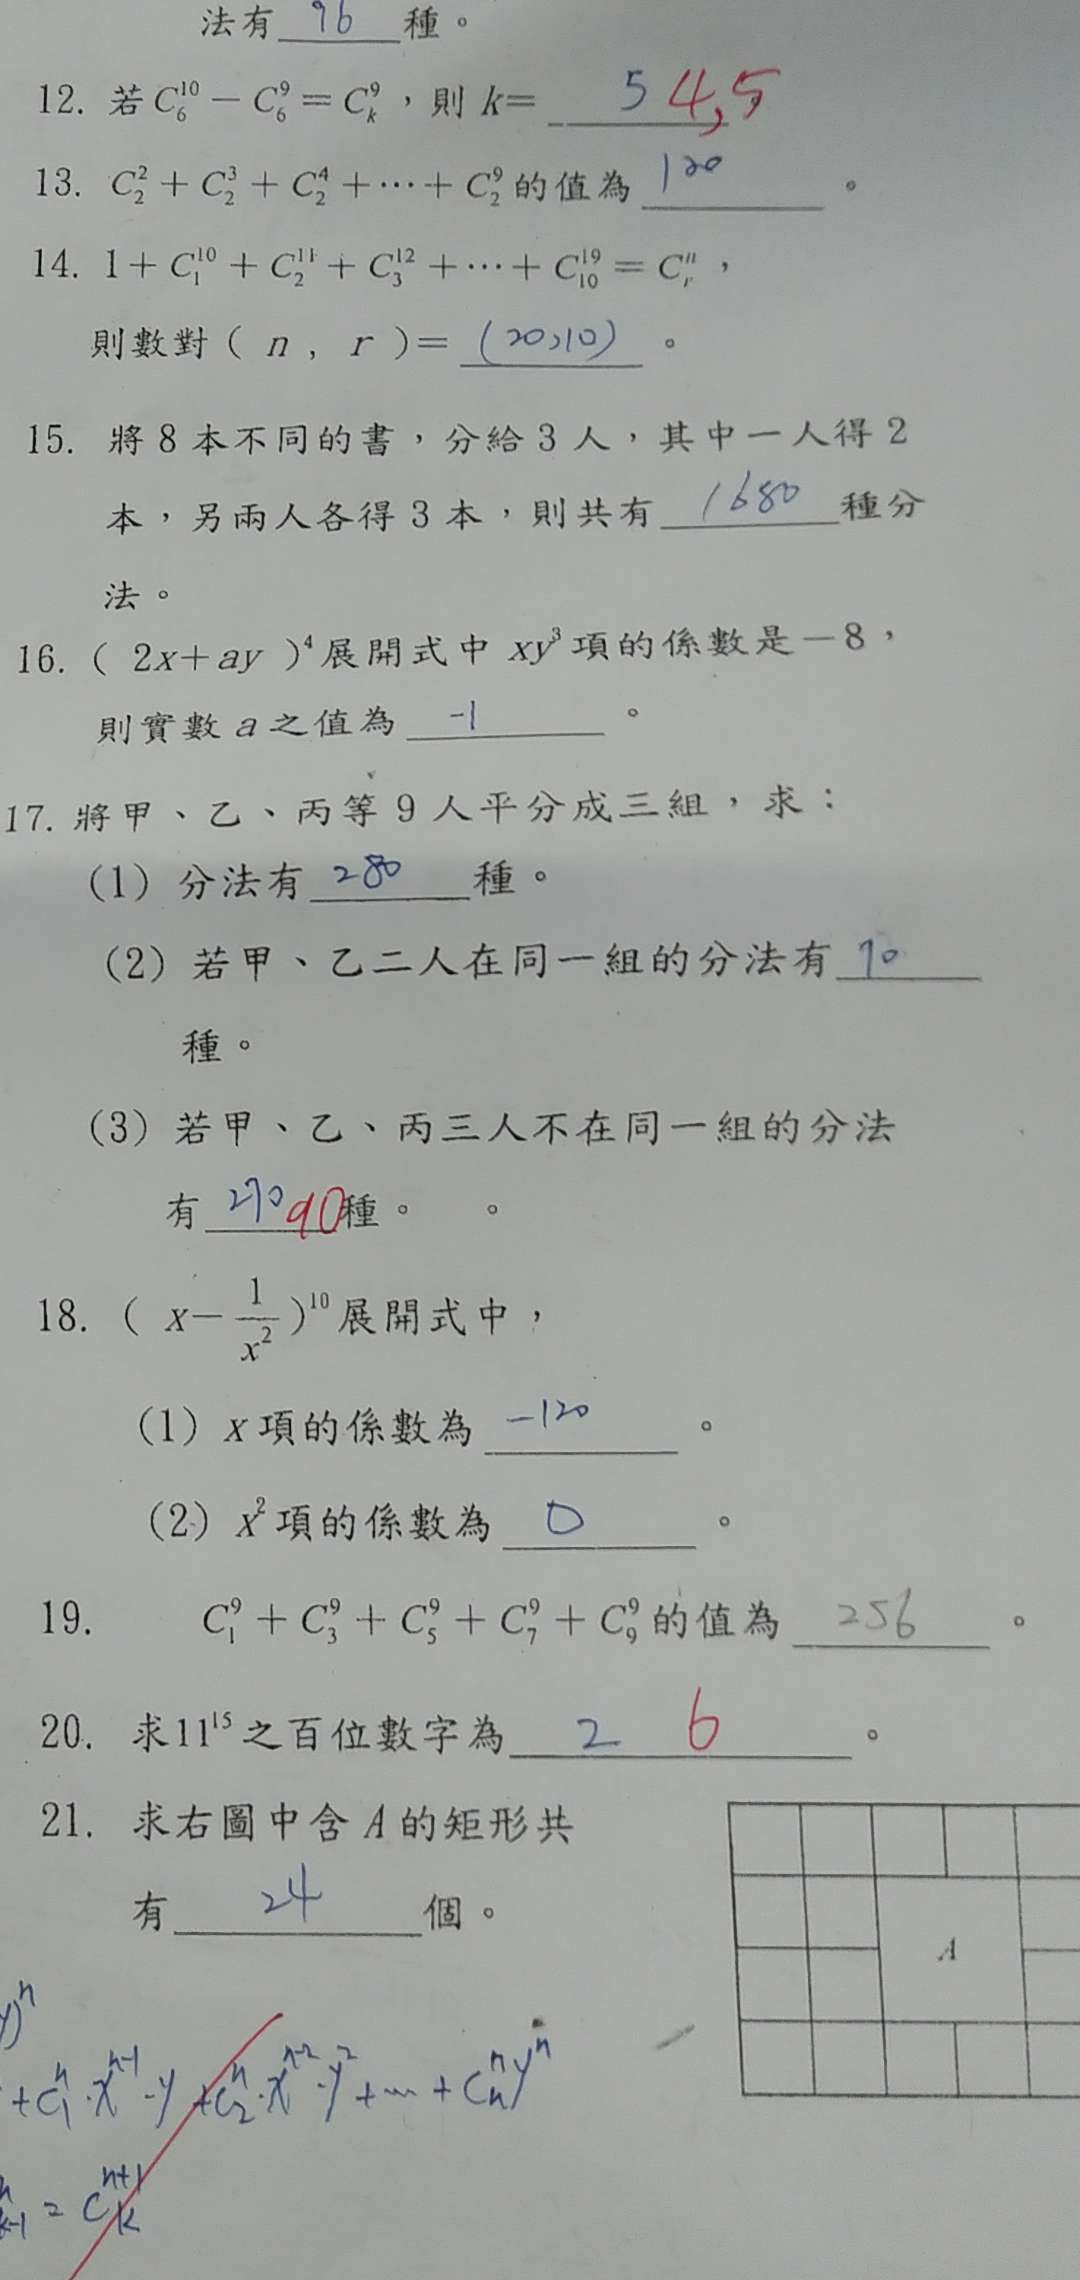 法有 96 種。
12. 若 C₆¹⁰ − C₆⁹ = C_k⁹，則 k= 5 4,5
13. C₂² + C₂³ + C₂⁴ + ⋯ + C₂⁹ 的值為 120 。
14. 1 + C₁¹⁰ + C₂¹¹ + C₃¹² + ⋯ + C₁₀¹⁹ = C_rⁿ，
則數對( n , r )= (20,10) 。
15. 將 8 本不同的書，分給 3 人，其中一人得 2
本，另兩人各得 3 本，則共有 1680 種分
法。
16. ( 2x+ay )⁴ 展開式中 xy³ 項的係數是 −8，
則實數 a 之值為 -1 。
17. 將甲、乙、丙等 9 人平分成三組，求：
(1) 分法有 280 種。
(2) 若甲、乙二人在同一組的分法有 70
種。
(3) 若甲、乙、丙三人不在同一組的分法
有 270 90 種。 。
18. ( x− 1/x² )¹⁰ 展開式中，
(1) x 項的係數為 -120 。
(2) x² 項的係數為 0 。
19. C₁⁹ + C₃⁹ + C₅⁹ + C₇⁹ + C₉⁹ 的值為 256 。
20. 求11¹⁵之百位數字為 2 6 。
21. 求右圖中含 A 的矩形共
有 24 個。
A
y)ⁿ
+ C₁ⁿ·xⁿ⁻¹·y + C₂ⁿ·xⁿ⁻²·y² + ⋯ + Cₙⁿyⁿ
ⁿₖ₋₁ = Cₖⁿ⁺¹